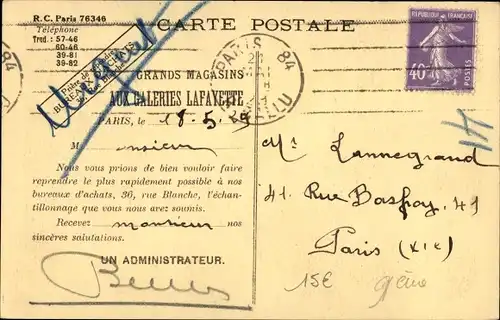 R. C. Paris 76346
Téléphone
Trud. : 57-46
60-46
39-81
39-82
CARTE POSTALE
RÉPUBLIQUE FRANÇAISE
40
POSTES
PARIS 84
GRANDS MAGASINS
AUX GALERIES LAFAYETTE
PARIS, le 18.5.
Monsieur
Nous vous prions de bien vouloir faire
reprendre le plus rapidement possible à nos
bureaux d'achats, 36, rue Blanche, l'échan-
tillonnage que vous nous avez soumis.
Recevez monsieur nos
sincères salutations.
UN ADMINISTRATEUR.
Mr Lannegrand
41. Rue Basfroy, 41
Paris (XIe)
15E